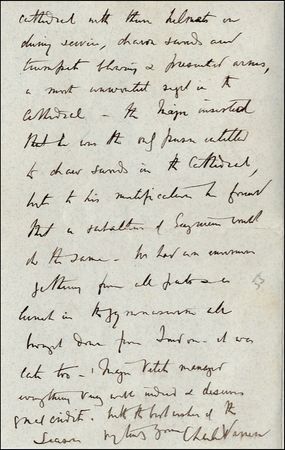 Cathedral with their helmets on
during service, drawn swords and
trumpets blaring & presented arms,
a most unwonted sight in the
Cathedral - the Major insisted
that he was the only person entitled
to draw swords in the Cathedral,
but to his mortification he found
that a subaltern of Engineers could
do the same. We had an enormous
gathering from all parts &
lunch in the gymnasium all
brought down from London - it was
late too - Major Vetch managed
everything very well indeed & deserves
great credit. With the best wishes of the
Season very truly yours Charles Warren